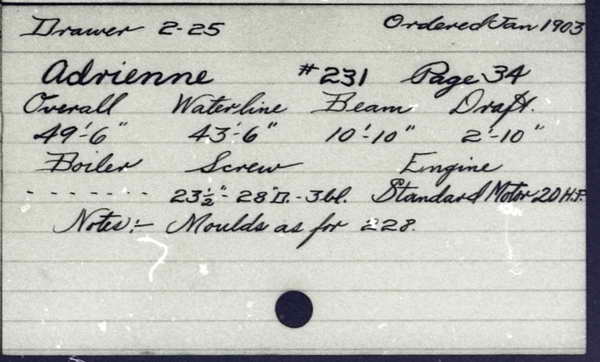 Drawer 2-25 Ordered Jan 1903
Adrienne #231 Page 34
Overall Waterline Beam Draft.
49'-6" 43'-6" 10'-10" 2'-10"
Boiler Screw Engine
- - - - - - - 23½" - 28"D. - 3 bl. Standard Motor 20 H.P.
Notes:- Moulds as for 228.